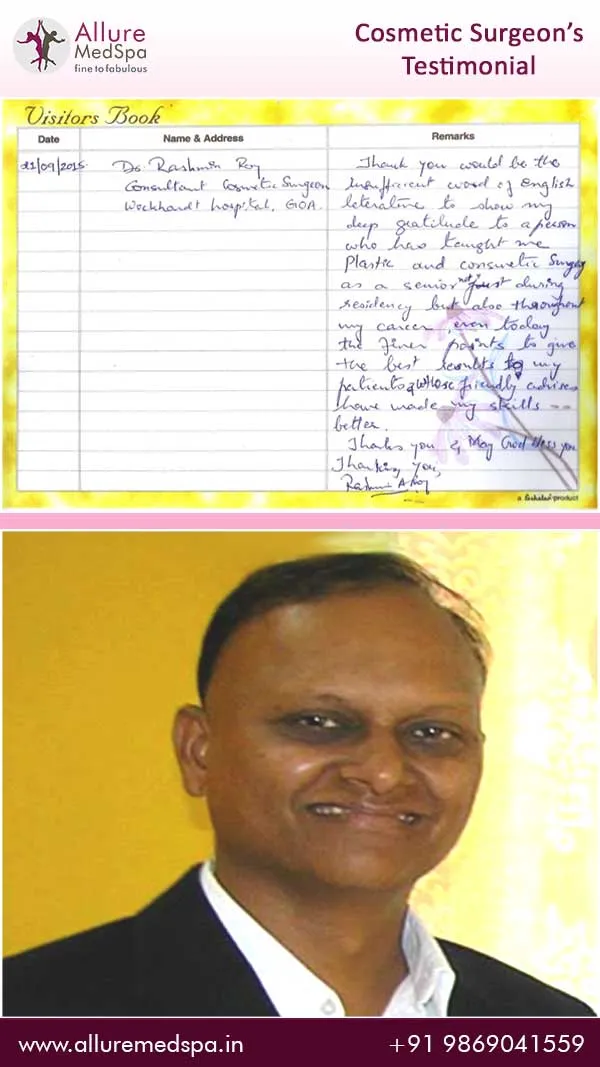 Allure
MedSpa
fine to fabulous
Cosmetic Surgeon's
Testimonial
Visitors Book
Date
Name & Address
Remarks
21/09/2015
Dr. Rashmin Roy
Consultant Cosmetic Surgeon
Wockhardt hospital, GOA.
Thank you would be the
insufficient word of english
leterature to show my
deep gratitude to a person
who has taught me
Plastic and consmetic Surgery
as a senior not just during
residency but also throughout
my career, even today
the finer points to give
the best results to my
patients & whose friendly advises
have made my skills --
better.
Thanks you & May God bless you
Thanking you,
Rashmi A Roy
a product
www.alluremedspa.in
+91 9869041559